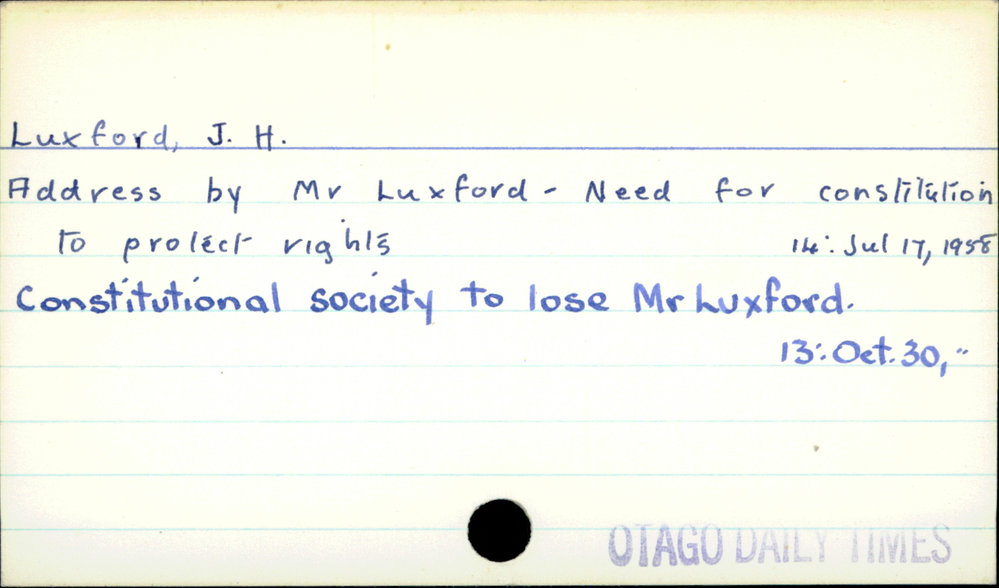 Luxford, J. H.
Address by Mr Luxford - Need for constitution
to protect rights 14: Jul 17, 1958
Constitutional society to lose Mr Luxford.
13: Oct. 30, "
OTAGO DAILY TIMES